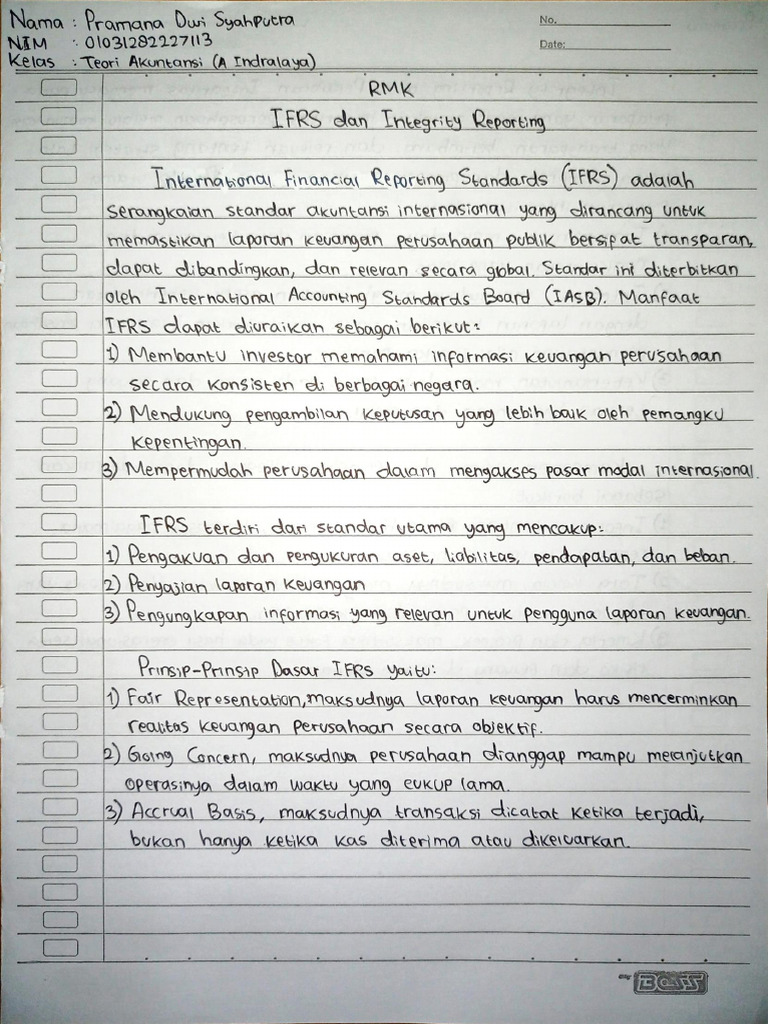 Nama : Pramana Dwi Syahputra
NIM : 01031282227113
Kelas : Teori Akuntansi (A Indralaya)
No.
Date:
RMK
IFRS dan Integrity Reporting
International Financial Reporting Standards (IFRS) adalah
serangkaian standar akuntansi internasional yang dirancang untuk
memastikan laporan keuangan perusahaan publik bersifat transparan,
dapat dibandingkan, dan relevan secara global. Standar ini diterbitkan
oleh International Accounting Standards Board (IASB). Manfaat
IFRS dapat diuraikan sebagai berikut:
1) Membantu investor memahami informasi keuangan perusahaan
secara konsisten di berbagai negara.
2) Mendukung pengambilan keputusan yang lebih baik oleh pemangku
kepentingan.
3) Mempermudah perusahaan dalam mengakses pasar modal internasional.
IFRS terdiri dari standar utama yang mencakup:
1) Pengakuan dan pengukuran aset, liabilitas, pendapatan, dan beban.
2) Penyajian laporan keuangan
3) Pengungkapan informasi yang relevan untuk pengguna laporan keuangan.
Prinsip-Prinsip Dasar IFRS yaitu:
1) Fair Representation, maksudnya laporan keuangan harus mencerminkan
realitas keuangan perusahaan secara objektif.
2) Going Concern, maksudnya perusahaan dianggap mampu melanjutkan
operasinya dalam waktu yang cukup lama.
3) Accrual Basis, maksudnya transaksi dicatat ketika terjadi,
bukan hanya ketika kas diterima atau dikeluarkan.
BOSS